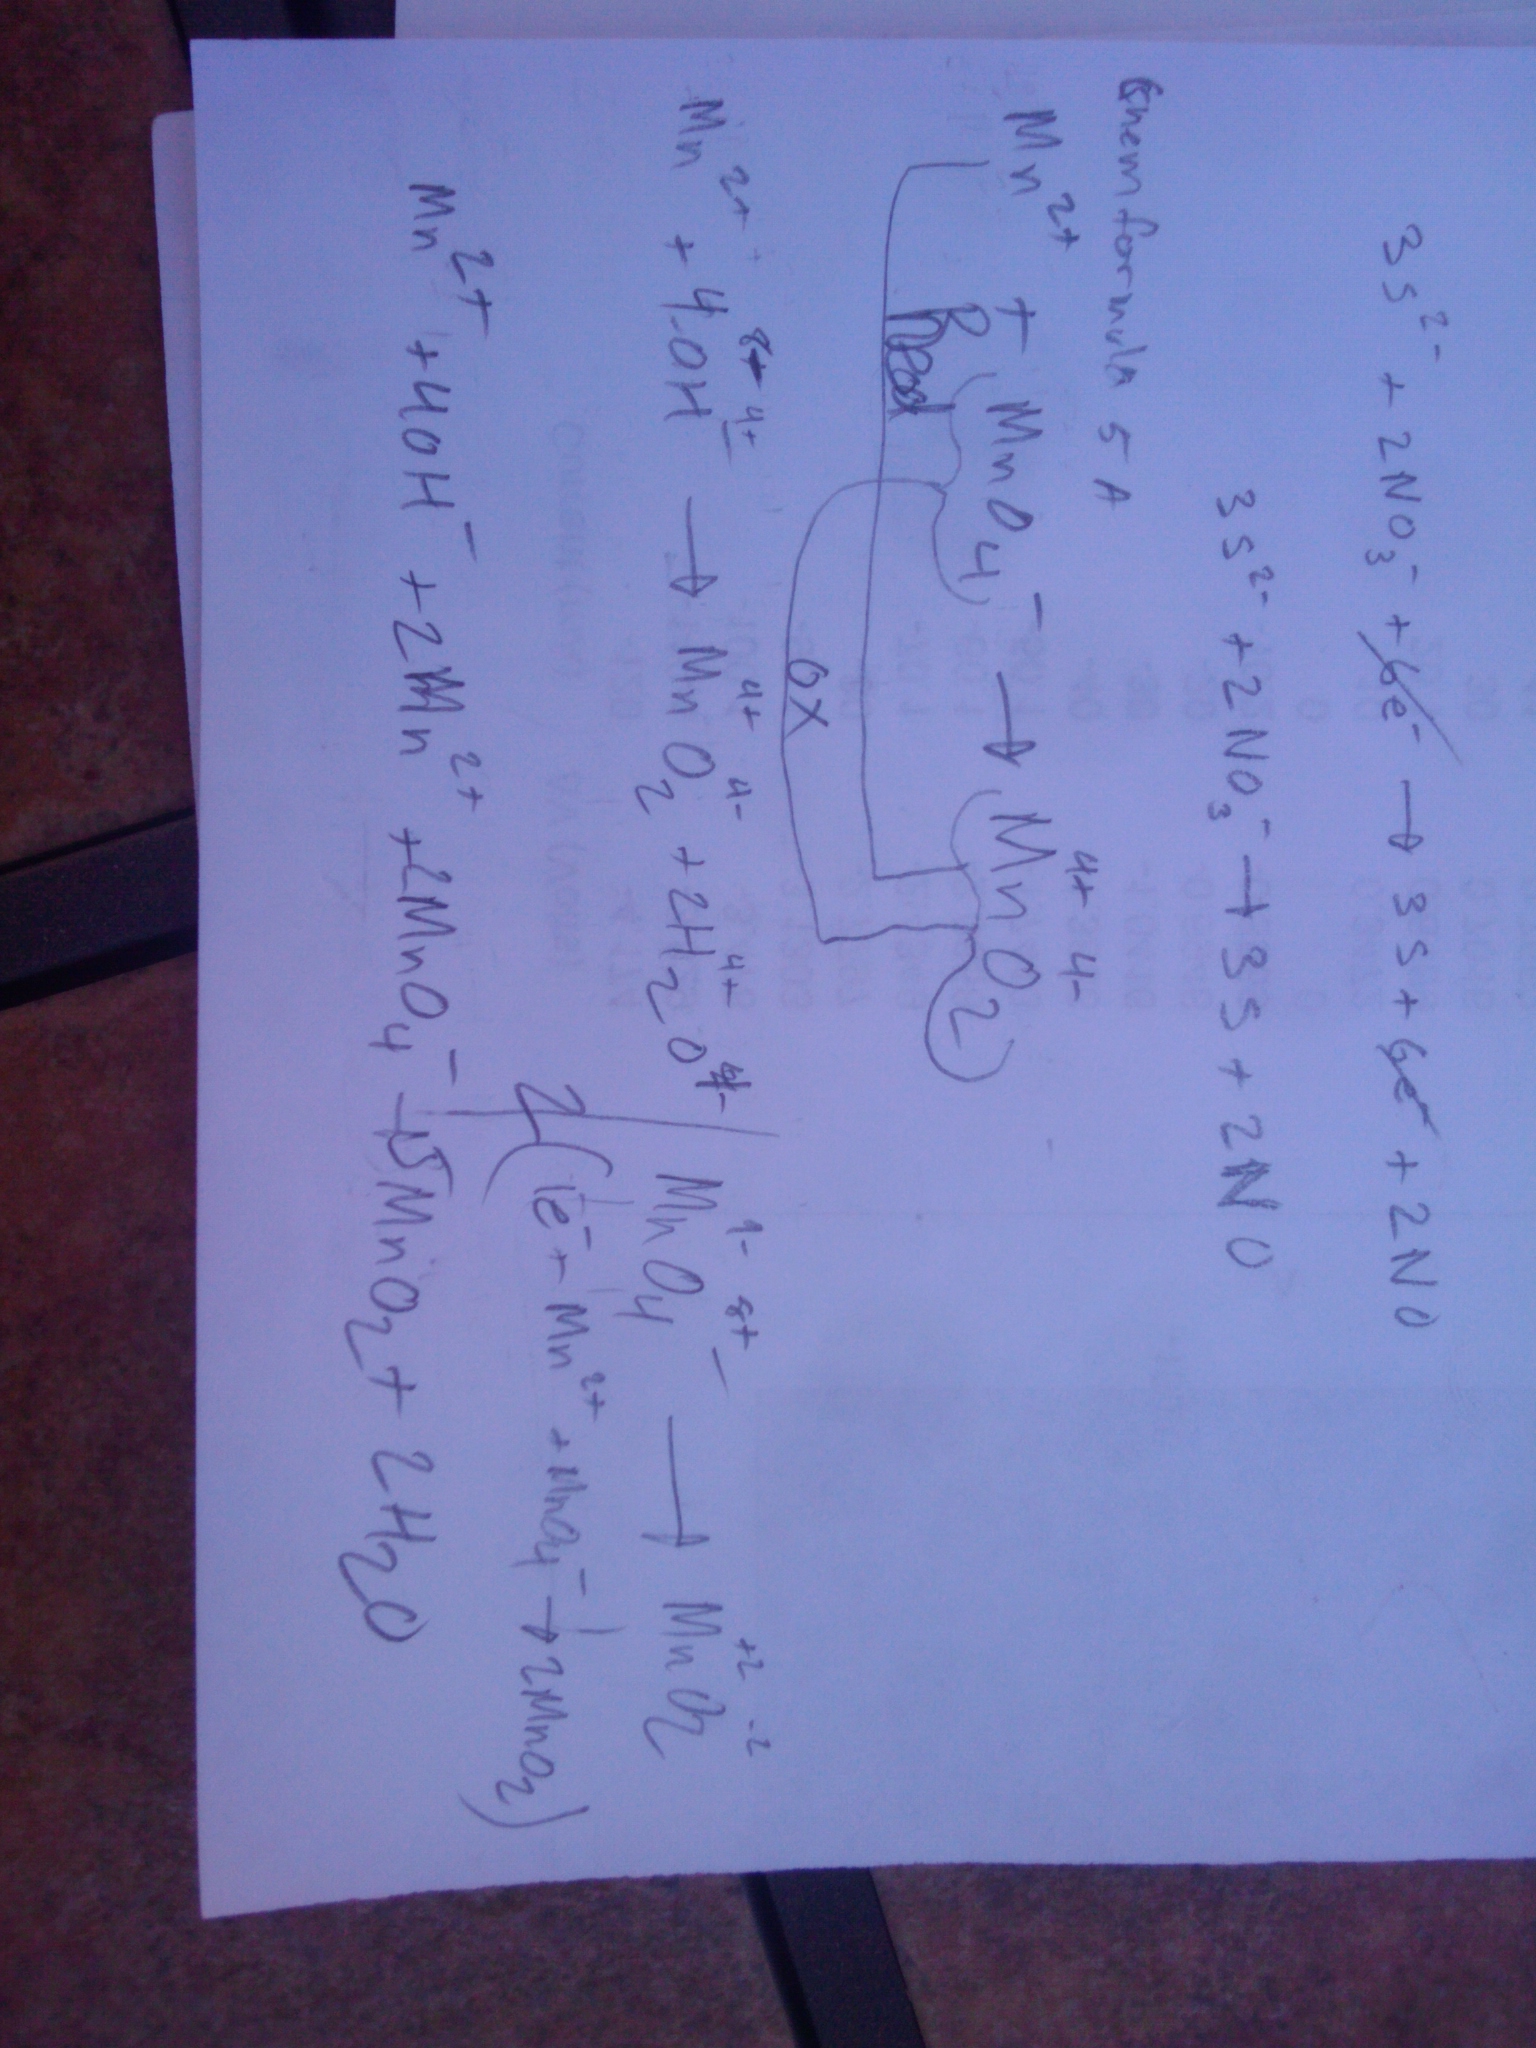 3S²⁻ + 2NO₃⁻ + 6e⁻ → 3S + 6e⁻ + 2NO
3S²⁻ + 2NO₃⁻ → 3S + 2NO
Chem formula 5A
Mn²⁺ + MnO₄⁻ → Mn⁴⁺O₂⁴⁻
Red
OX
Mn²⁺ + 4OH⁻ → MnO₂ + 2H₂O
4+ 4+ 4- 4+
MnO₄⁻ → MnO₂
8+ +2 -2
2(1e⁻ + Mn²⁺ + MnO₄⁻ → 2MnO₂)
Mn²⁺ + 4OH⁻ + 2Mn²⁺ + 2MnO₄⁻ → 5MnO₂ + 2H₂O